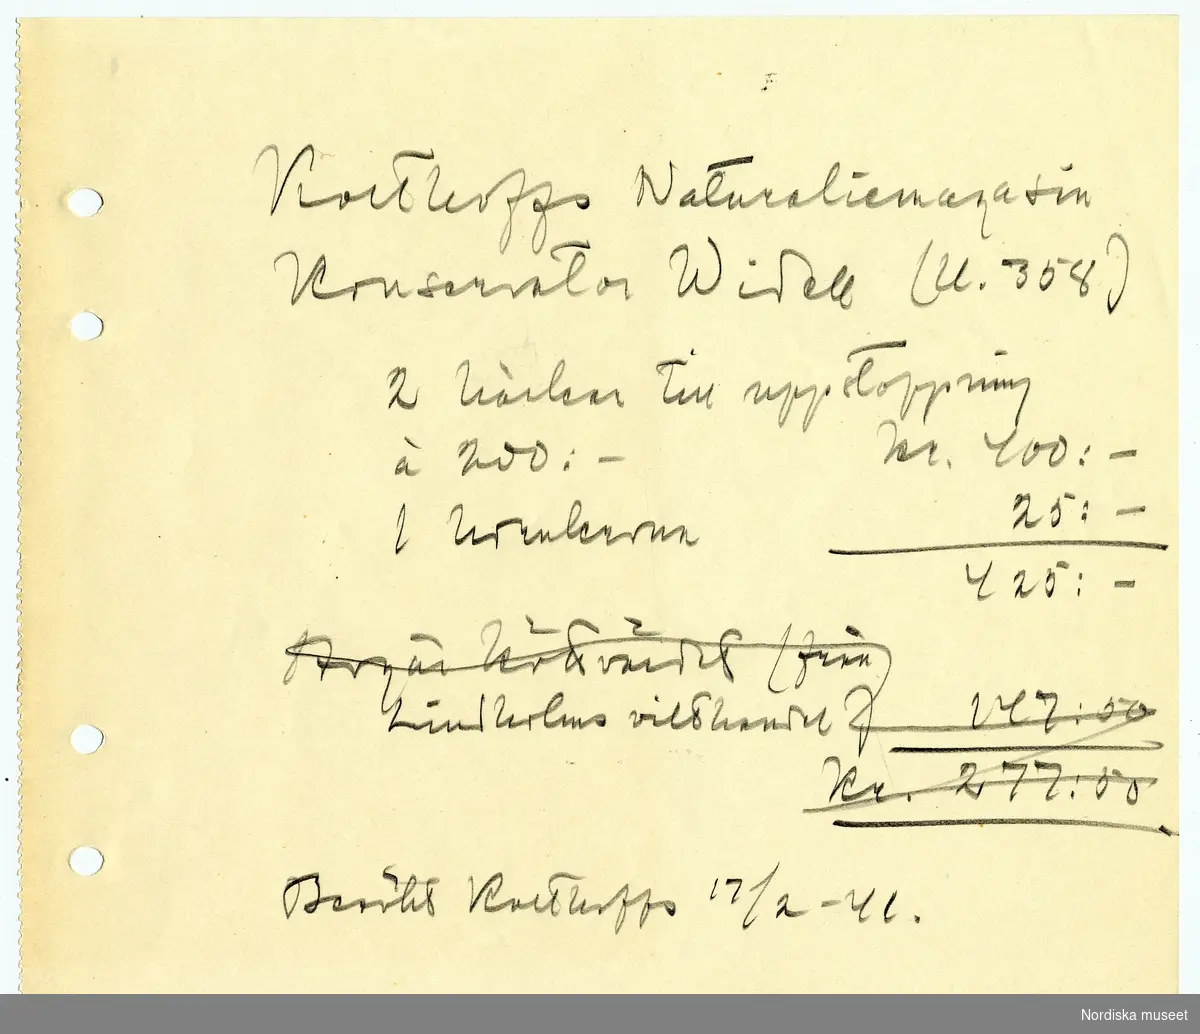 Kolthoffs Naturaliemagasin
Konservator Widell (U. 358)
2 till uppstoppning
à 200:- Kr. 400:-
1 25:-
425:-
Avgår köttvärdet (från
Lindholms vilthandel) 147:50
Kr. 277:50
Besökt Kolthoffs 17/2 -41.
Nordiska museet